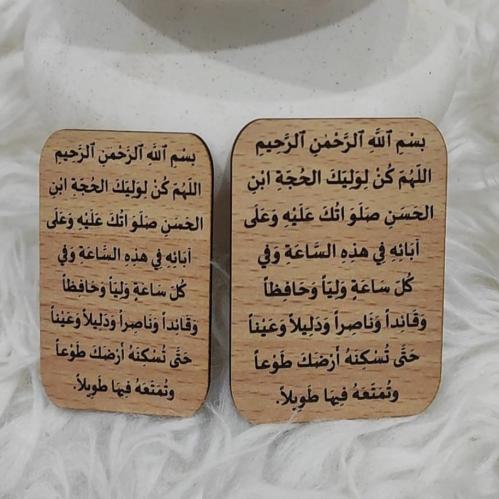 بِسْمِ ٱللَّهِ ٱلرَّحْمَٰنِ ٱلرَّحِيمِ
اللَهُمَ كُنْ لِوَلِيَكَ الحُجَةِ ابْنِ
الحَسَنِ صَلَوَ اتُكَ عَلَيْهِ وَعَلَى
آبَائِهِ فِي هذِهِ السَّاعَةِ وَفِي
كُلَ سَاعَةٍ وَلِيَاً وَحَافِظاً
وَقَائِداً وَنَاصِراً وَدَلِيلاً وَعَيْناً
حَتَّى تُسْكِنَهُ أَرْضَكَ طَوْعاً
وَتُمَتِّعَهُ فِيهَا طَوِيلاً.
بِسْمِ ٱللَّهِ ٱلرَّحْمَٰنِ ٱلرَّحِيمِ
اللَهُمَ كُنْ لِوَلِيَكَ الحُجَةِ ابْنِ
الحَسَنِ صَلَوَ اتُكَ عَلَيْهِ وَعَلَى
آبَائِهِ فِي هذِهِ السَّاعَةِ وَفِي
كُلَ سَاعَةٍ وَلِيَاً وَحَافِظاً
وَقَائِداً وَنَاصِراً وَدَلِيلاً وَعَيْناً
حَتَّى تُسْكِنَهُ أَرْضَكَ طَوْعاً
وَتُمَتِّعَهُ فِيهَا طَوِيلاً.